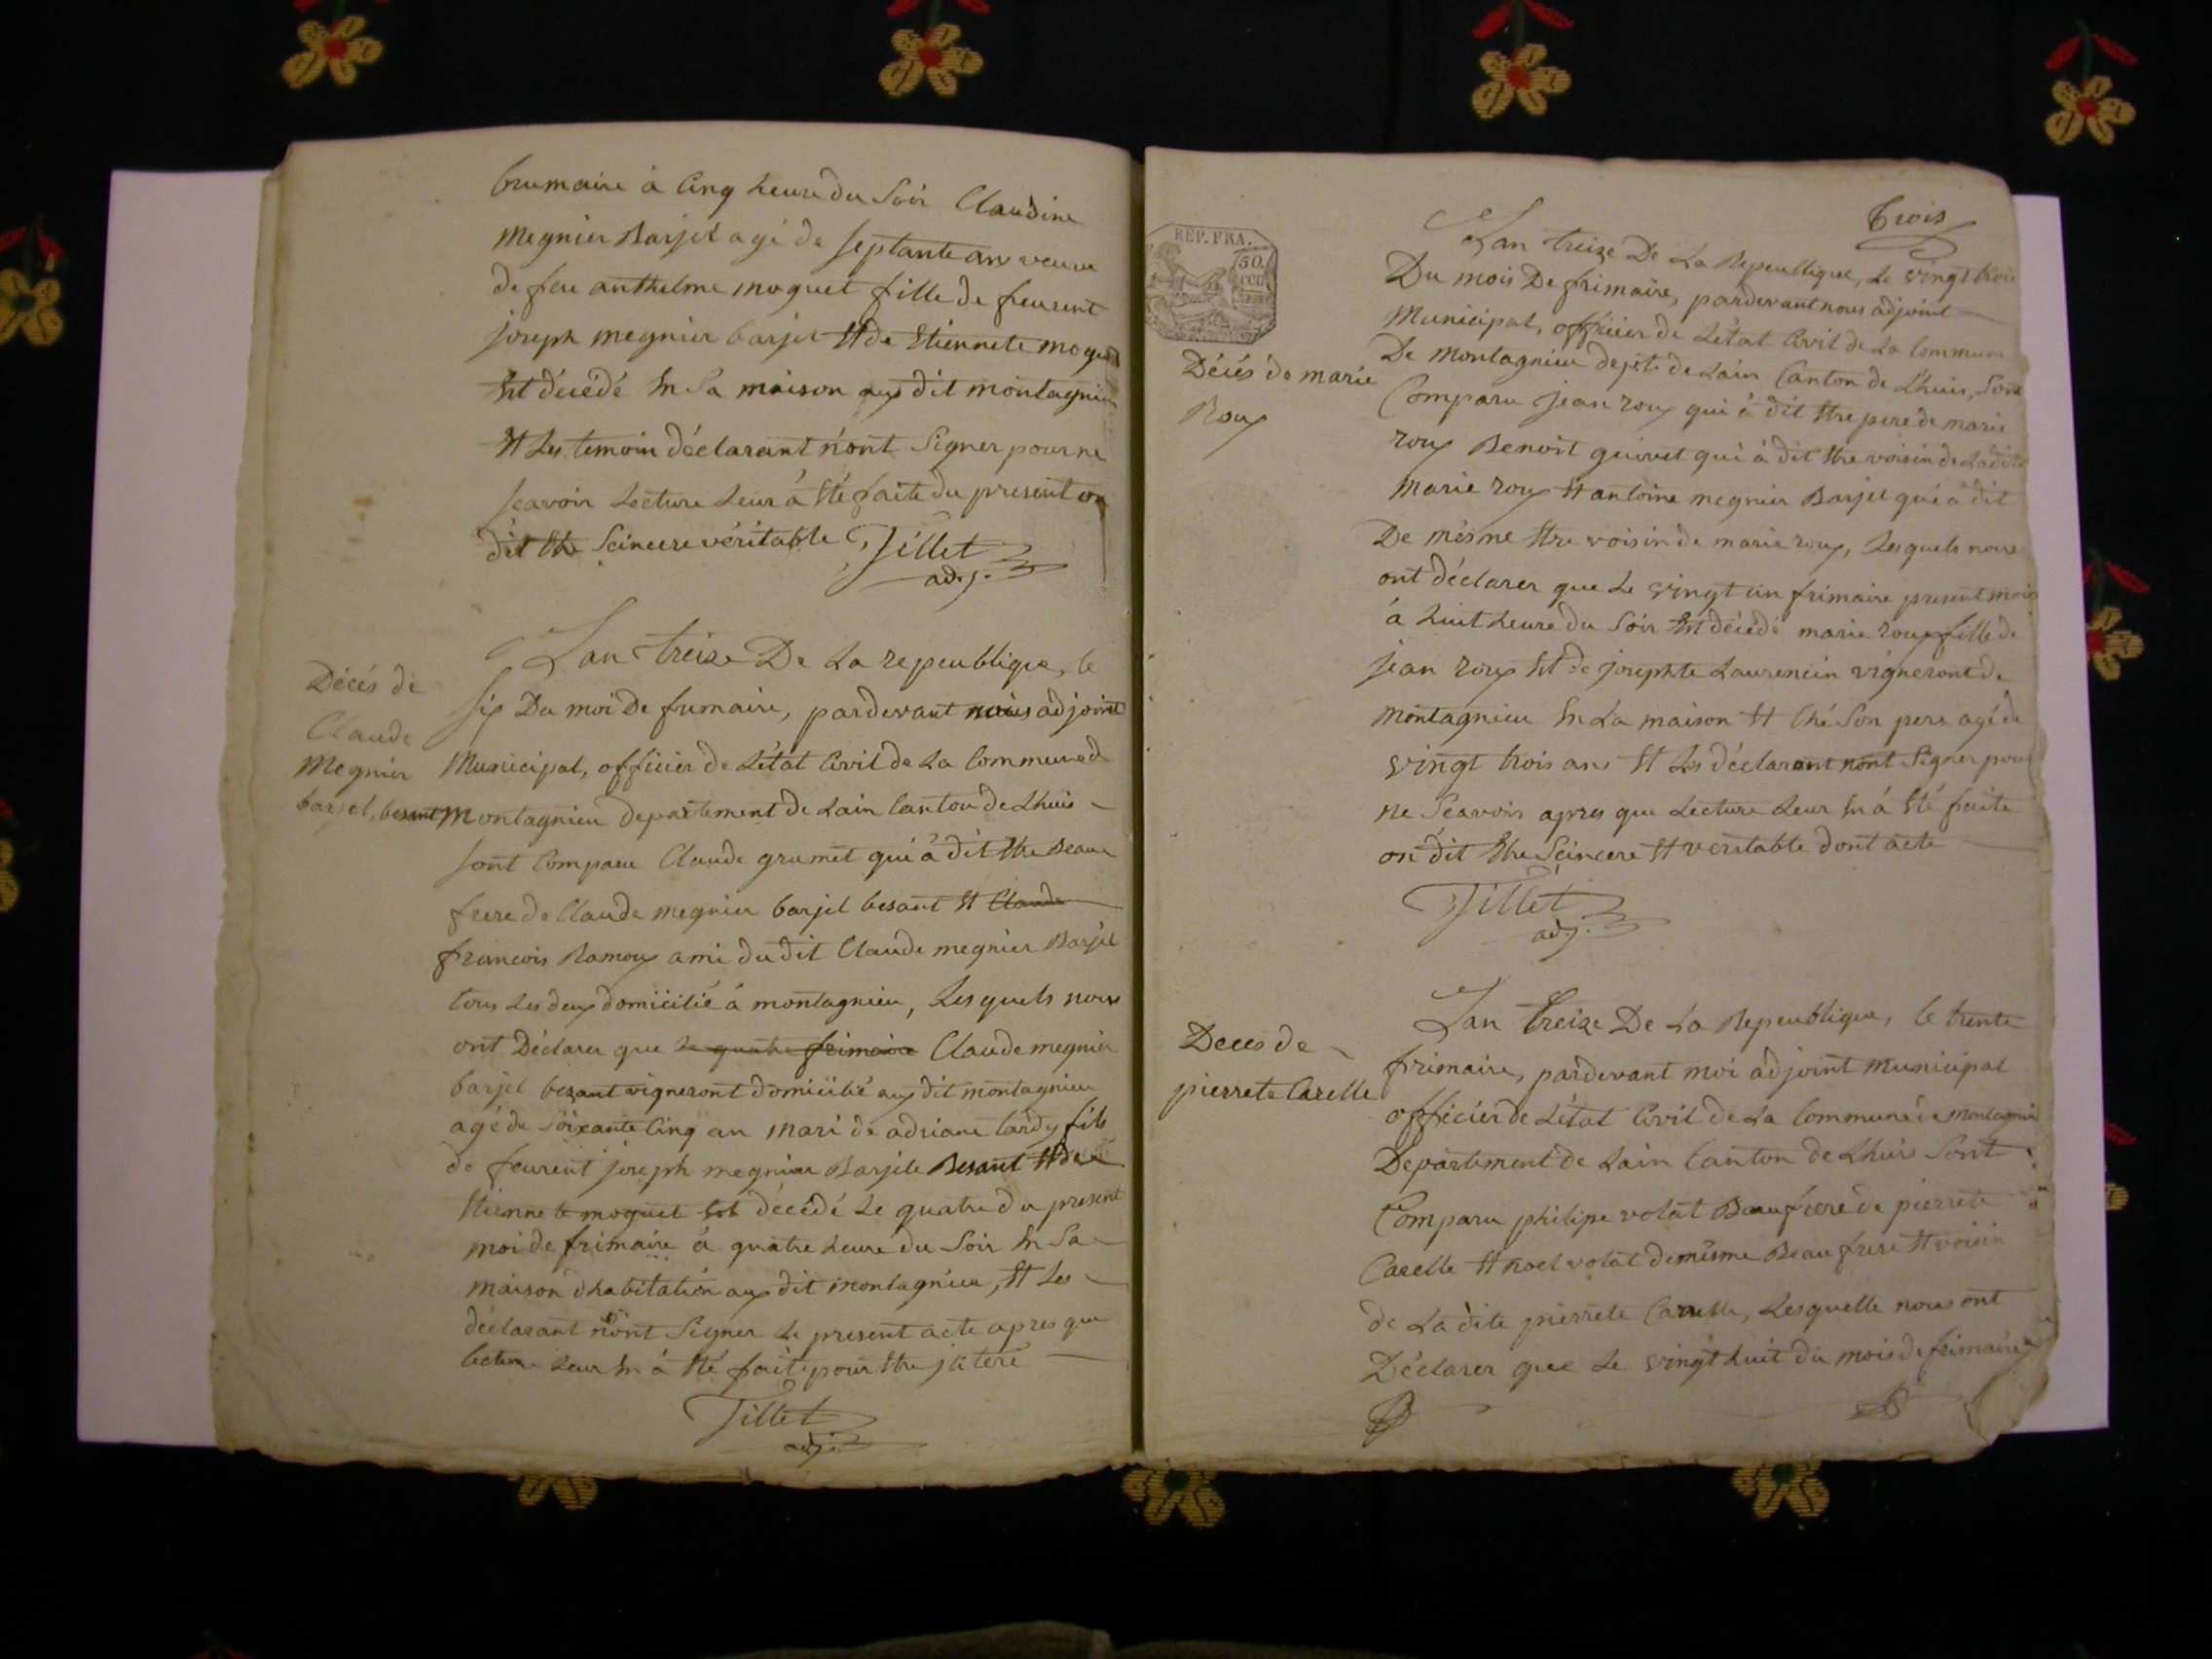 brumaire à Cinq heure du Soir Claudine
megnier Barjel agé de septante an veuve
de feu anthelme moguet fille de feurent
joseph megnier barjel Et de Etiennete moguet
Est décédé En Sa maison aux dit montagnieu
Et Les temoin déclarant n'ont Signer pour ne
scavoir Lecture Leur à Eté faite du present on
dit Etre Scincere véritable Tillet
adj.
Décés de
Claude
Megnier
barjel, besant
Lan treize De La repeublique, le
six Du moi De frimaire, pardevant nous adjoint
Municipal, officier de Létat Civil de La Commune de
Montagnieu departement de Lain Canton de Lhuis
sont Comparu Claude grumet qui à dit Etre Beau
frere de Claude megnier barjel besant Et Claude
francois Ramoux ami du dit Claude megnier Barjel
tous Les deux domicilié à montagnieu, Lesquels nous
ont Déclarer que Le quatre frimaire Claude megnier
barjel besant vigneront domicilié aux dit montagnieu
agé de soixante Cinq an mari de adriane tardy fils
de feurent joseph megnier Barjele Besant Et de
Etienne te moguet Est décédé Le quatre du present
moi de frimaire à quatre heure du Soir En Sa
maison d'habitation aux dit montagnieu, Et Les
déclarant n'ont Signer Le present acte apres que
lecture Leur En à Eté faite pour Etre jlleteré
Tillet
adj.
Trois
REP. FRA.
50.
cen
Décés de marie
Roux
Lan treize De La Repeublique, Le vingt trois
Du mois De frimaire, pardevant nous adjoint
Municipal, officier de Létat Civil de La Commune
De Montagnieu dept de Lain Canton de Lhuis, Sont
Comparu Jean roux qui à dit Etre pere de marie
roux Benoit guivet qui à dit Etre voisin de Ladite
Marie roux Et antoine megnier Barjel qui à dit
De mèsme Etre voisin de marie roux, Lesquels nous
ont déclarer que Le vingt un frimaire present mois
à huit heure du Soir Est décédé marie roux fille de
jean roux Et de josephte Laurencin vigneront de
Montagnieu En La maison Et Ché Son pere agé de
vingt trois ans Et Les déclarant nont Signer pour
ne Scavoir apres que Lecture Leur En à Eté faite
on dit Etre Scincere Et veritable dont acte
Tillet
adj.
Deces de
pierrete Carelle
Lan treize De La Repeublique, le trente
frimaire, pardevant moi adjoint municipal
officier de Létat Civil de La Commune de montagnieu
Departement de Lain Canton de Lhuis Sont
Comparu philipe volat Beaufrere de pierrete
Carelle Et noel volat demêsme Beau frere Et voisin
de Ladite pierrete Carelle, Lesquelle nous ont
Déclarer que Le vingt huit du mois de frimaire